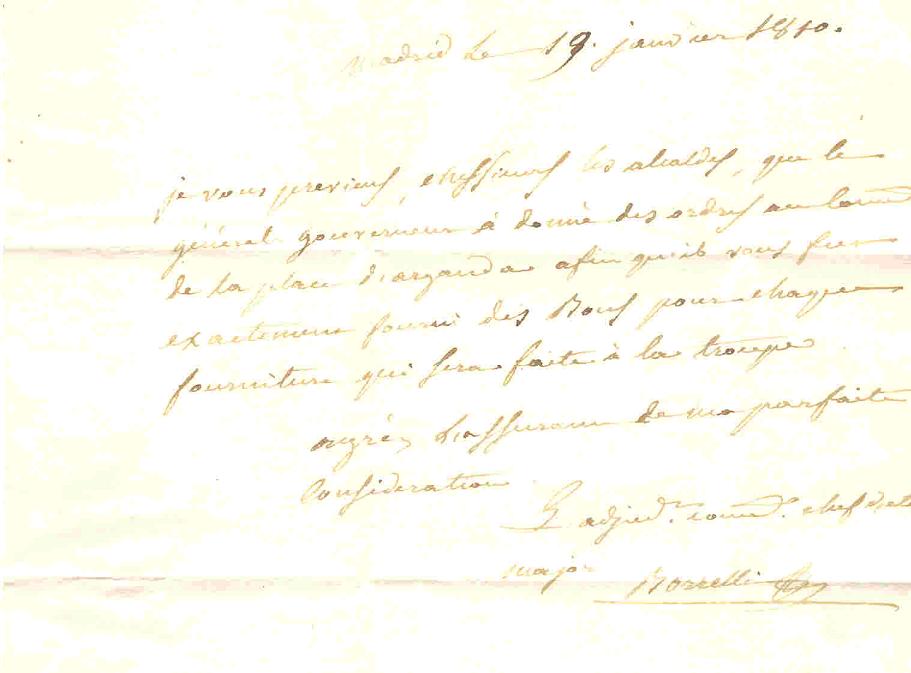 Madrid le 19. janvier 1810.
je vous previens, Messieurs les alcaldes, que le
général gouverneur à donné des ordres au Comm
de la place d'arganda afin qu'il vous fut
exactement fourni des Bons pour chaque
fourniture qui sera faite à la troupe
agréz l'assurance de ma parfaite
Consideration
L'adjud.t comm.t chef d'ét
major
Borrelli